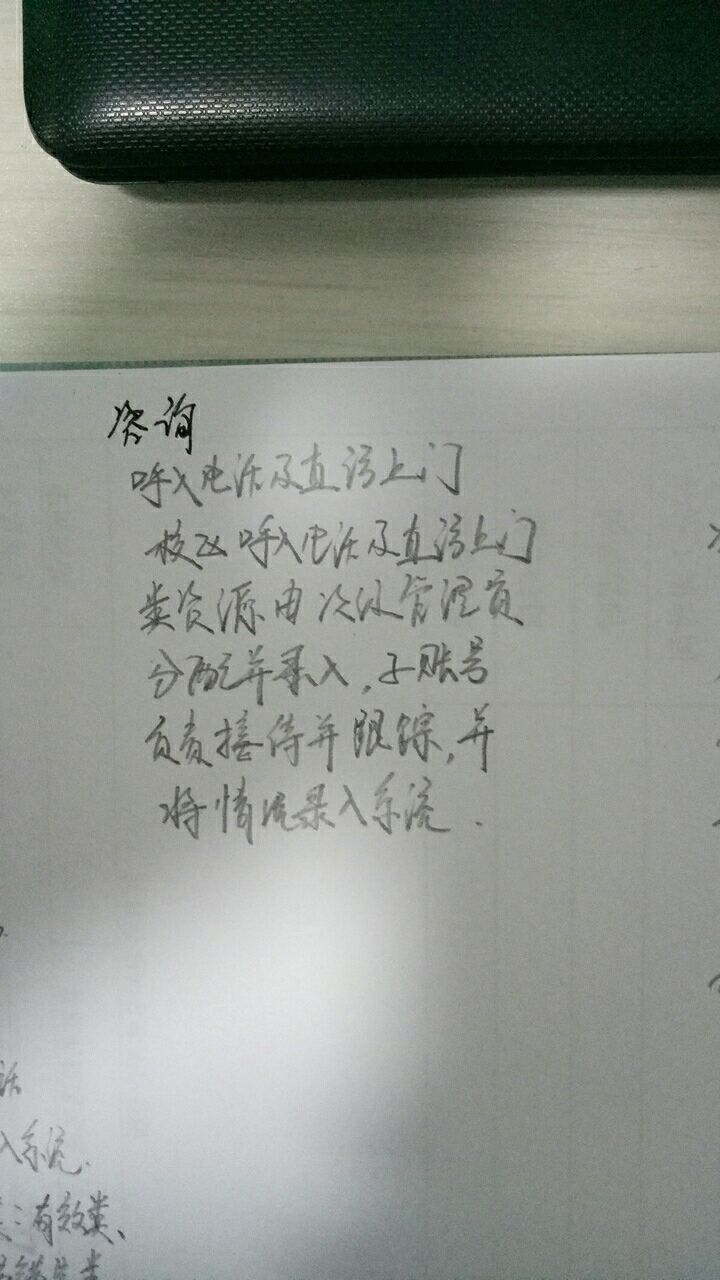 咨询
呼入电话及直访上门
校区呼入电话及直访上门
类资源由次级管理员
分配并录入,子账号
负责接待并跟踪,并
将情况录入系统.
话
入系统.
类:有效类、